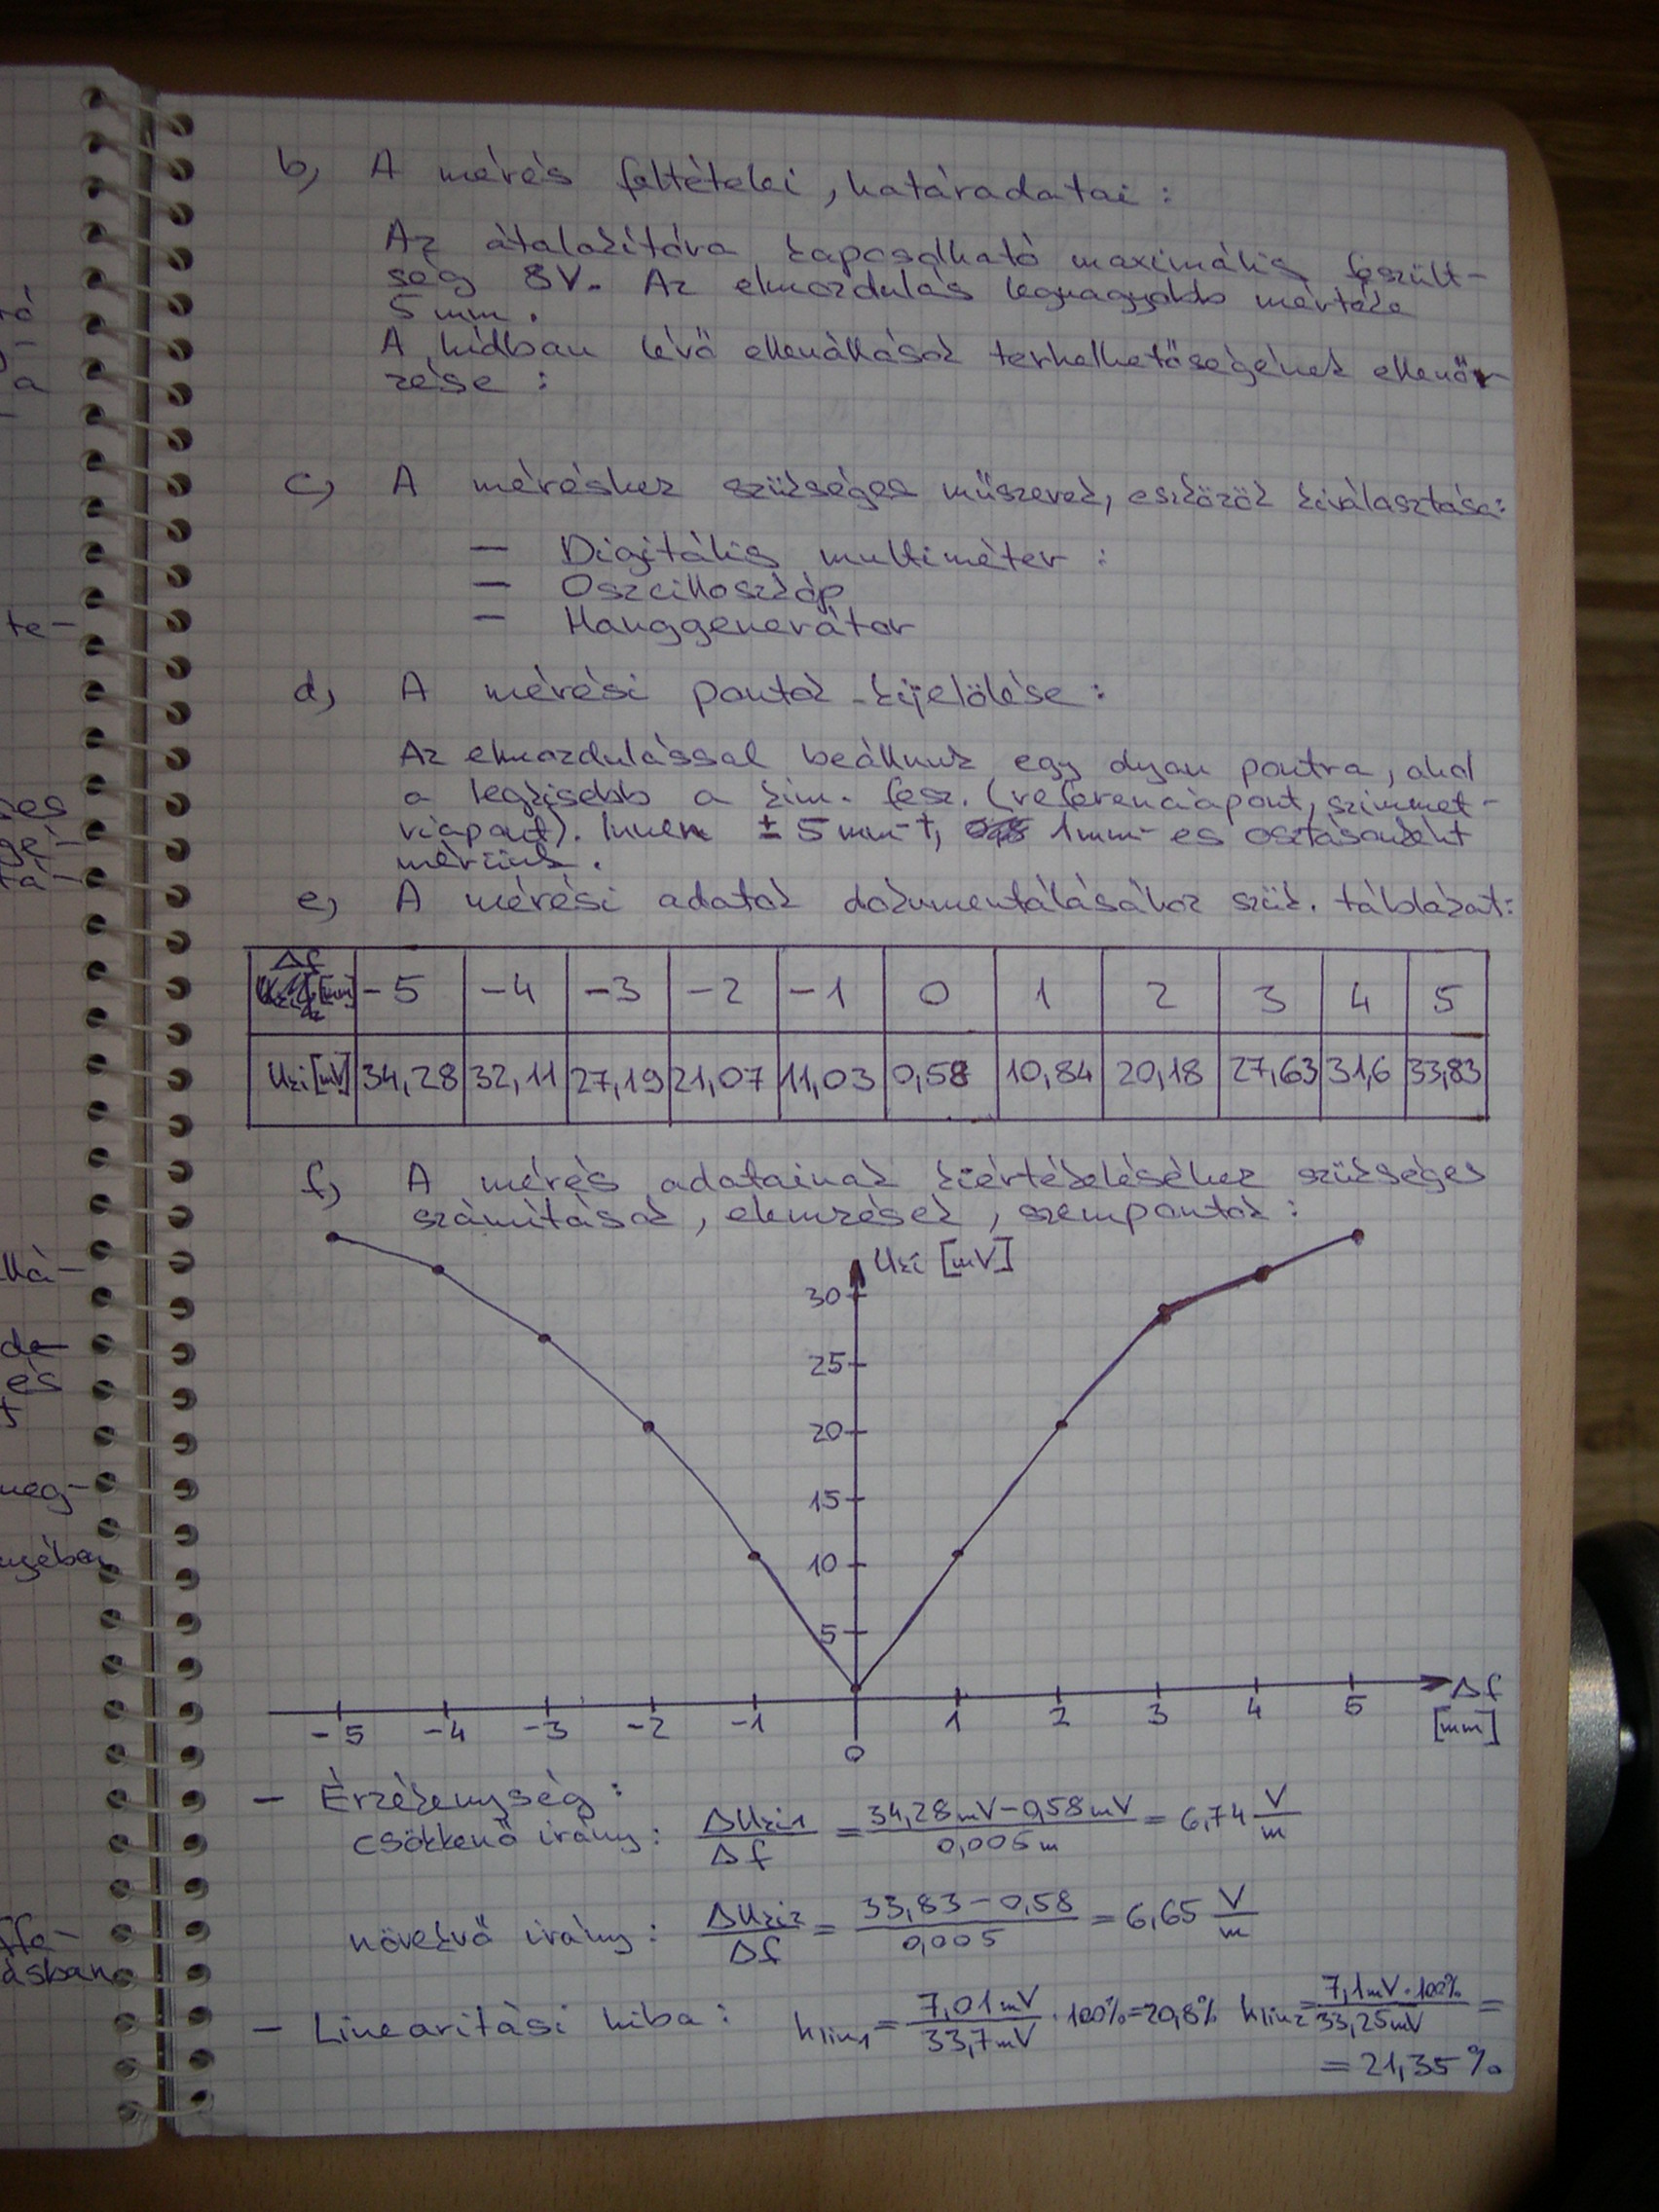 b) A mérés feltételei, határadatai:
Az átalakítóra kapcsolható maximális feszült-
ség 8V. Az elmozdulás legnagyobb mértéke
5 mm.
A hídban lévő ellenállások terhelhetőségének ellenőr
zése:
c) A méréshez szükséges műszerek, eszközök kiválasztása:
— Digitális multiméter:
— Oszcilloszkóp
— Hanggenerátor
d) A mérési pontok kijelölése:
Az elmozdulással beállunk egy olyan pontra, ahol
a legkisebb a kim. fesz. (referenciapont, szimmet-
riapont). Innen ± 5 mm-t, 1mm-es osztásonként
mérünk.
e) A mérési adatok dokumentálásához szük. táblázat:
Δf [mm] -5 -4 -3 -2 -1 0 1 2 3 4 5
Uki [mV] 34,28 32,11 27,19 21,07 11,03 0,58 10,84 20,18 27,63 31,6 33,83
f) A mérés adatainak kiértékeléséhez szükséges
számítások, elemzések, szempontok:
Uki [mV]
30
25
20
15
10
5
-5 -4 -3 -2 -1 0 1 2 3 4 5 Δf
[mm]
— Érzékenység:
csökkenő irány: ΔUki1/Δf = (34,28 mV - 0,58 mV)/0,005 m = 6,74 V/m
növekvő irány: ΔUki2/Δf = (33,83 - 0,58)/0,005 = 6,65 V/m
— Linearitási hiba: hlin1 = 7,01 mV/33,7 mV · 100% = 20,8% hlin2 = 7,1 mV · 100%/33,25 mV =
= 21,35 %
te-
llá-
de
és
meg-
ásban